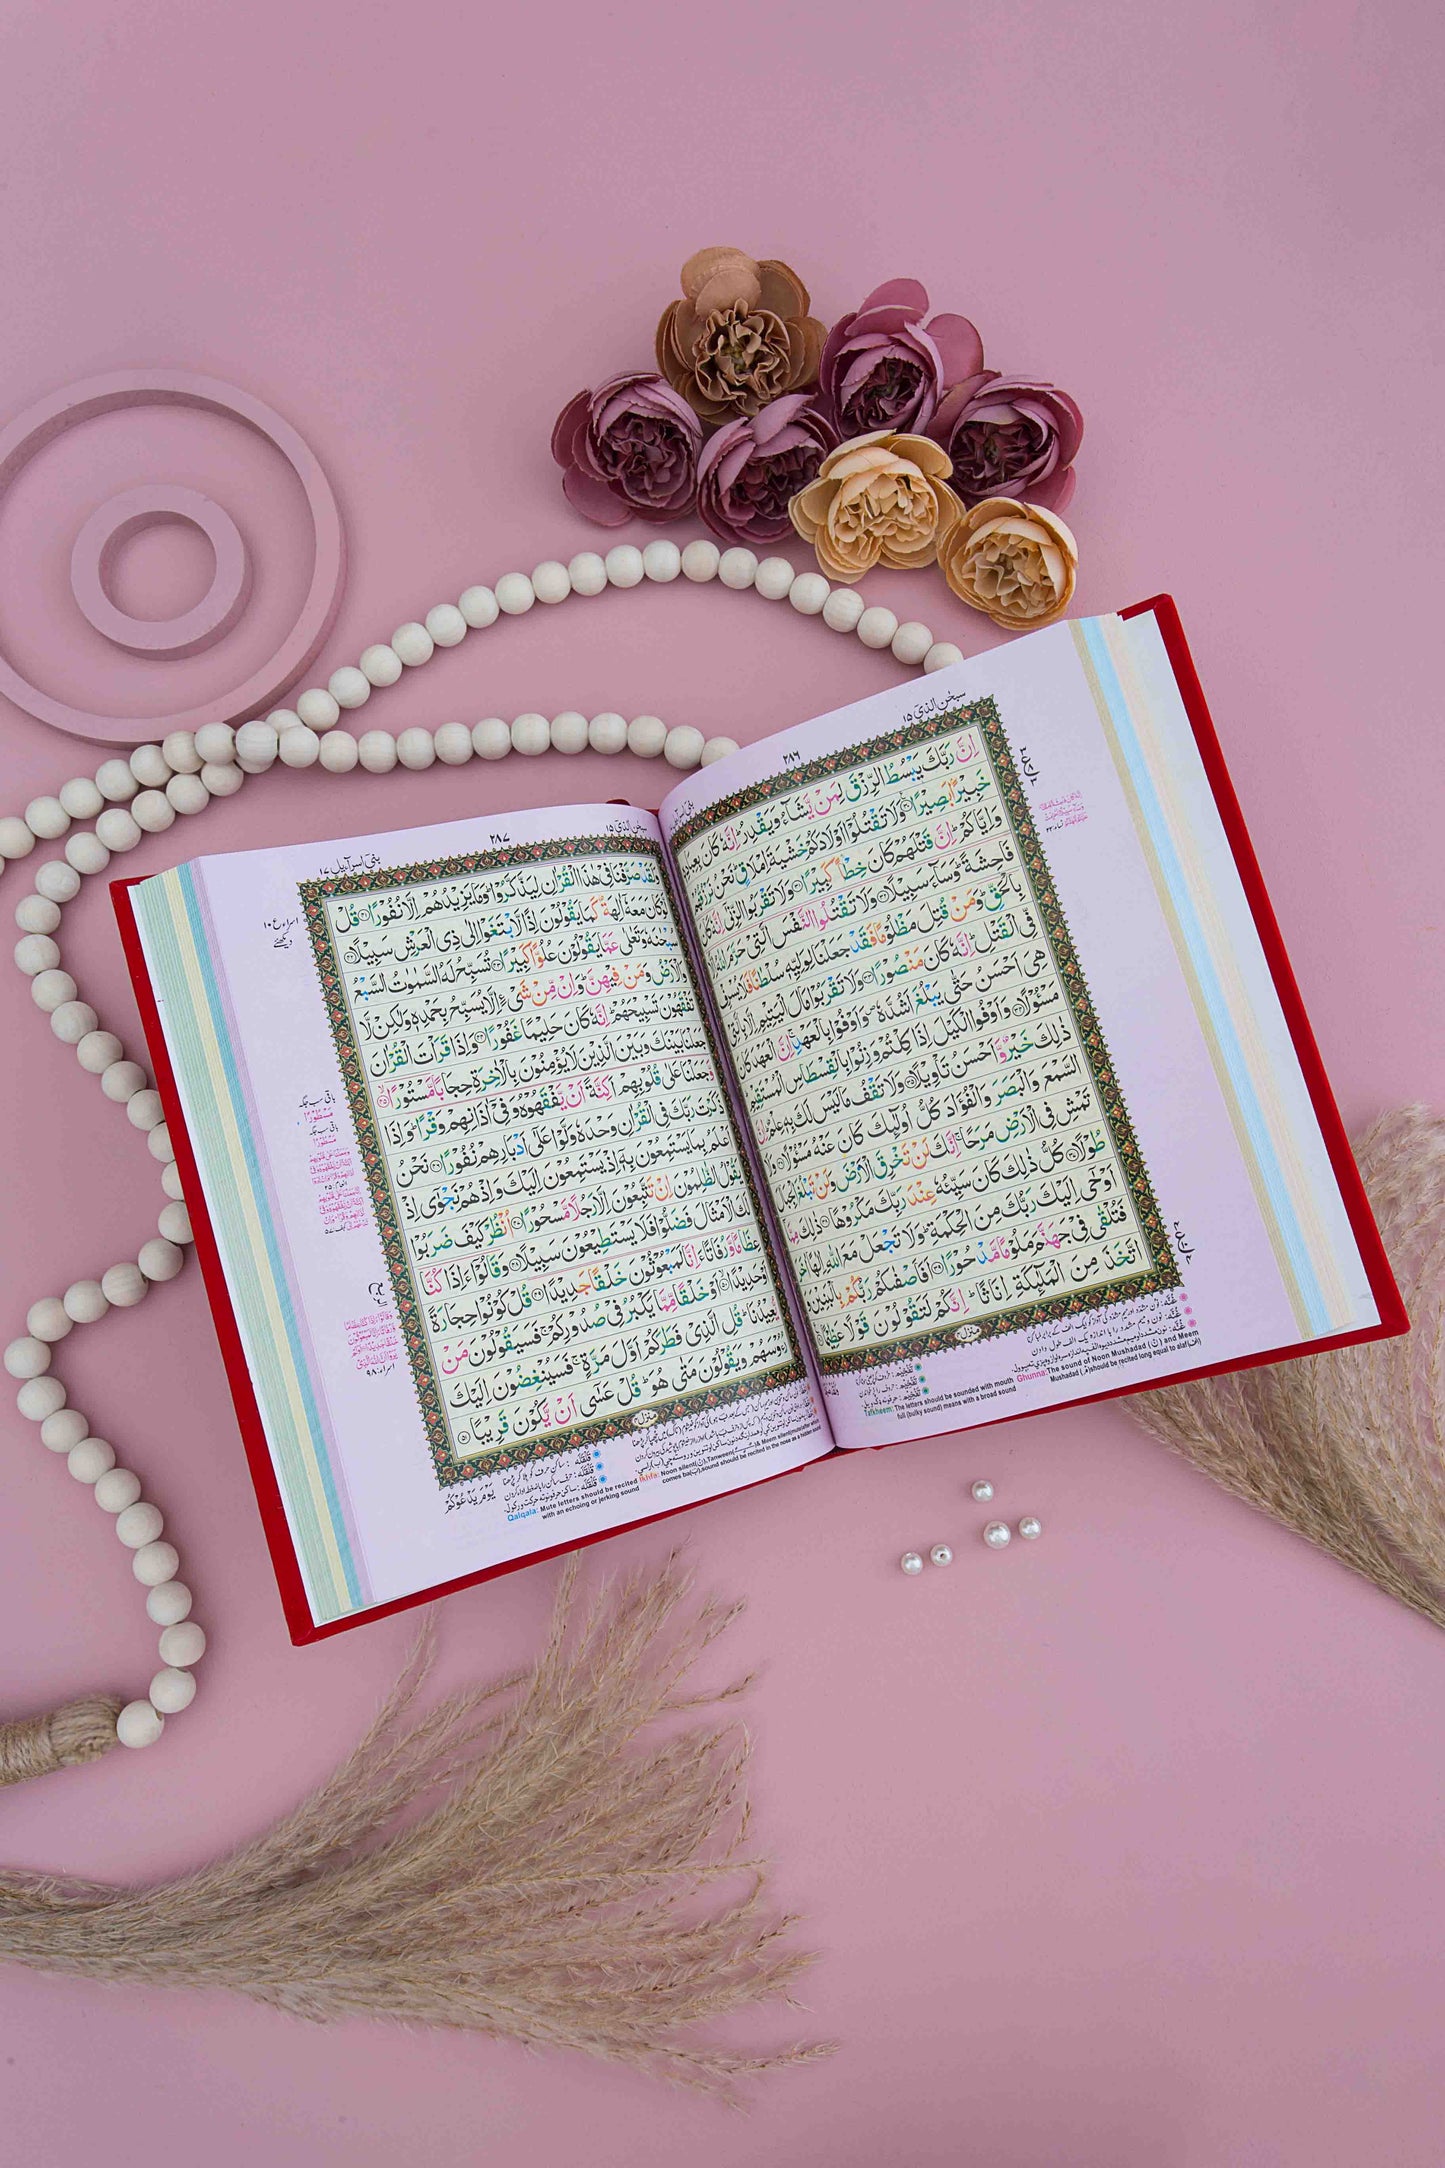 سبحٰن الذی ١٥
٢٨٦
بنیٓ اسرآءیل ١٧
اِنَّ رَبَّكَ يَبْسُطُ الرِّزْقَ لِمَنْ يَّشَآءُ وَيَقْدِرُ ؕ اِنَّهٗ كَانَ بِعِبَادِهٖ
خَبِيْرًۢا بَصِيْرًا ﴿٣٠﴾ وَلَا تَقْتُلُوْۤا اَوْلَادَكُمْ خَشْيَةَ اِمْلَاقٍ ؕ نَحْنُ نَرْزُقُهُمْ
وَاِيَّاكُمْ ؕ اِنَّ قَتْلَهُمْ كَانَ خِطْاً كَبِيْرًا ﴿٣١﴾ وَلَا تَقْرَبُوا الزِّنٰٓى اِنَّهٗ كَانَ
فَاحِشَةً ؕ وَسَآءَ سَبِيْلًا ﴿٣٢﴾ وَلَا تَقْتُلُوا النَّفْسَ الَّتِيْ حَرَّمَ اللّٰهُ اِلَّا
بِالْحَقِّ ؕ وَمَنْ قُتِلَ مَظْلُوْمًا فَقَدْ جَعَلْنَا لِوَلِيِّهٖ سُلْطٰنًا فَلَا يُسْرِفْ
فِّي الْقَتْلِ ؕ اِنَّهٗ كَانَ مَنْصُوْرًا ﴿٣٣﴾ وَلَا تَقْرَبُوْا مَالَ الْيَتِيْمِ اِلَّا بِالَّتِيْ
هِيَ اَحْسَنُ حَتّٰى يَبْلُغَ اَشُدَّهٗ ۪ وَاَوْفُوْا بِالْعَهْدِ ۚ اِنَّ الْعَهْدَ كَانَ
مَسْـُٔوْلًا ﴿٣٤﴾ وَاَوْفُوا الْكَيْلَ اِذَا كِلْتُمْ وَزِنُوْا بِالْقِسْطَاسِ الْمُسْتَقِيْمِ ؕ
ذٰلِكَ خَيْرٌ وَّاَحْسَنُ تَاْوِيْلًا ﴿٣٥﴾ وَلَا تَقْفُ مَا لَيْسَ لَكَ بِهٖ عِلْمٌ ؕ اِنَّ
السَّمْعَ وَالْبَصَرَ وَالْفُؤَادَ كُلُّ اُولٰٓئِكَ كَانَ عَنْهُ مَسْـُٔوْلًا ﴿٣٦﴾ وَلَا
تَمْشِ فِي الْاَرْضِ مَرَحًا ۚ اِنَّكَ لَنْ تَخْرِقَ الْاَرْضَ وَلَنْ تَبْلُغَ الْجِبَالَ
طُوْلًا ﴿٣٧﴾ كُلُّ ذٰلِكَ كَانَ سَيِّئُهٗ عِنْدَ رَبِّكَ مَكْرُوْهًا ﴿٣٨﴾ ذٰلِكَ مِمَّاۤ
اَوْحٰۤى اِلَيْكَ رَبُّكَ مِنَ الْحِكْمَةِ ؕ وَلَا تَجْعَلْ مَعَ اللّٰهِ اِلٰهًا اٰخَرَ
فَتُلْقٰى فِيْ جَهَنَّمَ مَلُوْمًا مَّدْحُوْرًا ﴿٣٩﴾ اَفَاَصْفٰىكُمْ رَبُّكُمْ بِالْبَنِيْنَ
وَاتَّخَذَ مِنَ الْمَلٰٓئِكَةِ اِنَاثًا ؕ اِنَّكُمْ لَتَقُوْلُوْنَ قَوْلًا عَظِيْمًا ﴿٤٠﴾
منزل ٤
Tafkheem: The letters should be sounded with mouth
full (bulky sound) means with a broad sound
Ghunna: The sound of Noon Mushadad (نّ) and Meem
Mushadad (مّ) should be recited long equal to alaf
سبحٰن الذی ١٥
٢٨٧
بنیٓ اسرآءیل ١٧
وَلَقَدْ صَرَّفْنَا فِيْ هٰذَا الْقُرْاٰنِ لِيَذَّكَّرُوْا ؕ وَمَا يَزِيْدُهُمْ اِلَّا نُفُوْرًا ﴿٤١﴾ قُلْ
لَّوْ كَانَ مَعَهٗۤ اٰلِهَةٌ كَمَا يَقُوْلُوْنَ اِذًا لَّابْتَغَوْا اِلٰى ذِي الْعَرْشِ سَبِيْلًا ﴿٤٢﴾
سُبْحٰنَهٗ وَتَعٰلٰى عَمَّا يَقُوْلُوْنَ عُلُوًّا كَبِيْرًا ﴿٤٣﴾ تُسَبِّحُ لَهُ السَّمٰوٰتُ السَّبْعُ
وَالْاَرْضُ وَمَنْ فِيْهِنَّ ؕ وَاِنْ مِّنْ شَيْءٍ اِلَّا يُسَبِّحُ بِحَمْدِهٖ وَلٰكِنْ لَّا
تَفْقَهُوْنَ تَسْبِيْحَهُمْ ؕ اِنَّهٗ كَانَ حَلِيْمًا غَفُوْرًا ﴿٤٤﴾ وَاِذَا قَرَاْتَ الْقُرْاٰنَ
جَعَلْنَا بَيْنَكَ وَبَيْنَ الَّذِيْنَ لَا يُؤْمِنُوْنَ بِالْاٰخِرَةِ حِجَابًا مَّسْتُوْرًا ﴿٤٥﴾
وَّجَعَلْنَا عَلٰى قُلُوْبِهِمْ اَكِنَّةً اَنْ يَّفْقَهُوْهُ وَفِيْۤ اٰذَانِهِمْ وَقْرًا ؕ وَاِذَا
ذَكَرْتَ رَبَّكَ فِي الْقُرْاٰنِ وَحْدَهٗ وَلَّوْا عَلٰۤى اَدْبَارِهِمْ نُفُوْرًا ﴿٤٦﴾ نَحْنُ
اَعْلَمُ بِمَا يَسْتَمِعُوْنَ بِهٖۤ اِذْ يَسْتَمِعُوْنَ اِلَيْكَ وَاِذْ هُمْ نَجْوٰۤى اِذْ
يَقُوْلُ الظّٰلِمُوْنَ اِنْ تَتَّبِعُوْنَ اِلَّا رَجُلًا مَّسْحُوْرًا ﴿٤٧﴾ اُنْظُرْ كَيْفَ ضَرَبُوْا
لَكَ الْاَمْثَالَ فَضَلُّوْا فَلَا يَسْتَطِيْعُوْنَ سَبِيْلًا ﴿٤٨﴾ وَقَالُوْۤا ءَاِذَا كُنَّا
عِظَامًا وَّرُفَاتًا ءَاِنَّا لَمَبْعُوْثُوْنَ خَلْقًا جَدِيْدًا ﴿٤٩﴾ قُلْ كُوْنُوْا حِجَارَةً
اَوْ حَدِيْدًا ﴿٥٠﴾ اَوْ خَلْقًا مِّمَّا يَكْبُرُ فِيْ صُدُوْرِكُمْ ۚ فَسَيَقُوْلُوْنَ مَنْ
يُّعِيْدُنَا ؕ قُلِ الَّذِيْ فَطَرَكُمْ اَوَّلَ مَرَّةٍ ۚ فَسَيُنْغِضُوْنَ اِلَيْكَ
رُءُوْسَهُمْ وَيَقُوْلُوْنَ مَتٰى هُوَ ؕ قُلْ عَسٰۤى اَنْ يَّكُوْنَ قَرِيْبًا ﴿٥١﴾
منزل ٤
يَوْمَ يَدْعُوْكُمْ
Qalqala: Mute letters should be recited
with an echoing or jerking sound
Ikhfa: Noon silent(نْ),Tanween(ــًــٍــٌ) Meem silent(mute)after which
comes ba(ب),sound should be recited in the nose as a hidden sound